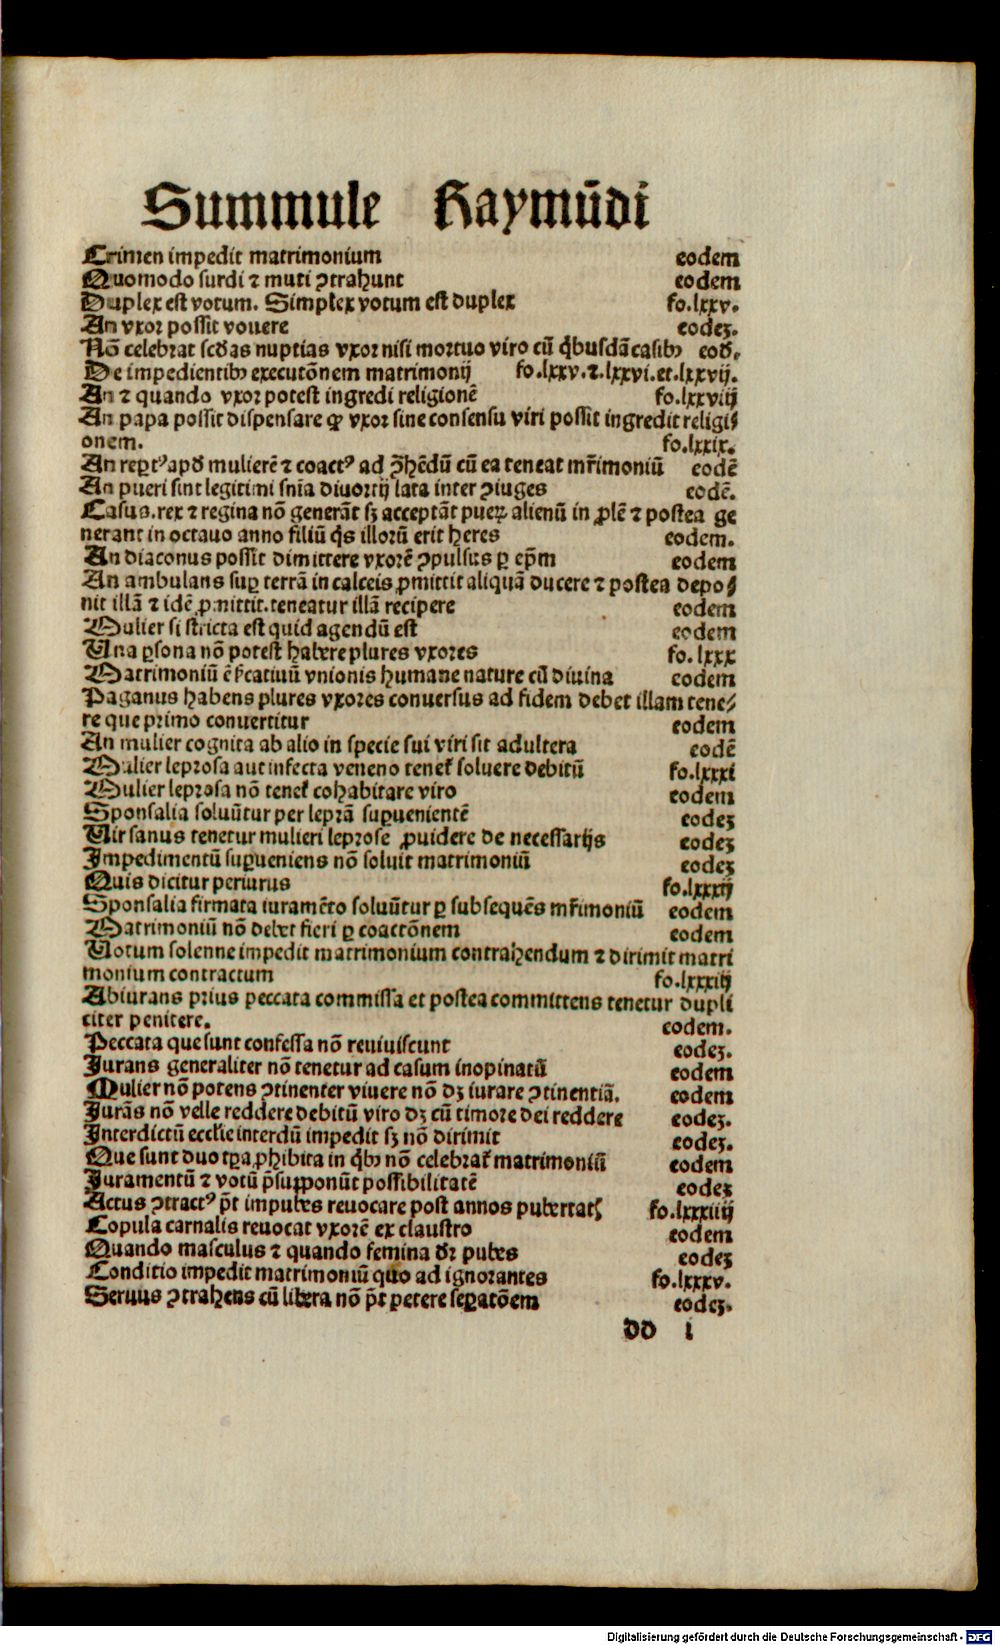 Summule Raymūdi
Crimen impedit matrimonium eodem
Quomodo surdi ⁊ muti ꝯtrahunt eodem
Duplex est votum. Simplex votum est duplex fo.lxxv.
An vxor possit vouere eodeꝫ.
Nō celebrat scd̄as nuptias vxor nisi mortuo viro cū q̄busdā casibꝰ eod̄.
De impedientibꝰ executōnem matrimonij fo.lxxv.⁊.lxxvi.et.lxxvij.
An ⁊ quando vxor potest ingredi religionē fo.lxxviij
An papa possit dispensare ꝙ vxor sine consensu viri possit ingredit religi⸗
onem. fo.lxxix.
An reꝑtꝰ apd̄ mulierē ⁊ coactꝰ ad ꝯ̄hēdū cū ea teneat mr̄imoniū eodē
An pueri sint legitimi snīa diuortij lata inter ꝯiuges eodē.
Casus.rex ⁊ regina nō generāt sꝫ acceptāt pueꝝ alienū in ꝓlē ⁊ postea ge
nerant in octauo anno filiū q̄s illorū erit heres eodem.
An diaconus possit dimittere vxorē ꝯpulsus ꝑ ep̄m eodem
An ambulans suꝑ terrā in calceis ꝓmittit aliquā ducere ⁊ postea depo⸗
nit illā ⁊ idē ꝓmittit.teneatur illā recipere eodem
Mulier si stricta est quid agendū est eodem
Una ꝑsona nō potest habere plures vxores fo.lxxx
Matrimoniū ē s̄catiuū vnionis humane nature cū diuina eodem
Paganus habens plures vxores conuersus ad fidem debet illam tene⸗
re que primo conuertitur eodem
An mulier cognita ab alio in specie sui viri sit adultera eodē
Mulier leprosa aut infecta veneno teneť soluere debitū fo.lxxxi
Mulier leprosa nō teneť cohabitare viro eodem
Sponsalia soluūtur per leprā suꝑuenientē eodeꝫ
Uir sanus tenetur mulieri leprose ꝓuidere de necessarijs eodeꝫ
Impedimentū suꝑueniens nō soluit matrimoniū eodeꝫ
Quis dicitur periurus fo.lxxxij
Sponsalia firmata iuramēto soluūtur ꝑ subsequēs mr̄imoniū eodem
Matrimoniū nō debet fieri ꝑ coactōnem eodem
Uotum solenne impedit matrimonium contrahendum ⁊ dirimit matri
monium contractum fo.lxxxiij
Abiurans prius peccata commissa et postea committens tenetur dupli
citer penitere. eodem.
Peccata que sunt confessa nō reuiuiscunt eodeꝫ.
Jurans generaliter nō tenetur ad casum inopinatū eodem
Mulier nō potens ꝯtinenter viuere nō dꝫ iurare ꝯtinentiā. eodem
Jurās nō velle reddere debitū viro dꝫ cū timore dei reddere eodeꝫ.
Interdictū ecclīe interdū impedit sꝫ nō dirimit eodeꝫ.
Que sunt duo tꝑa ꝓhibita in q̄bꝰ nō celebrať matrimoniū eodem
Juramentū ⁊ votū p̄supponūt possibilitatē eodeꝫ
Actus ꝯtractꝰ p̄t impubes reuocare post annos pubertatꝭ fo.lxxxiiij
Copula carnalis reuocat vxorē ex claustro eodem
Quando masculus ⁊ quando femina dr̄ pubes eodeꝫ
Conditio impedit matrimoniū quo ad ignorantes fo.lxxxv.
Seruus ꝯtrahens cū libera nō p̄t petere seꝑatōem eodeꝫ.
dd i
Digitalisierung gefördert durch die Deutsche Forschungsgemeinschaft - DFG